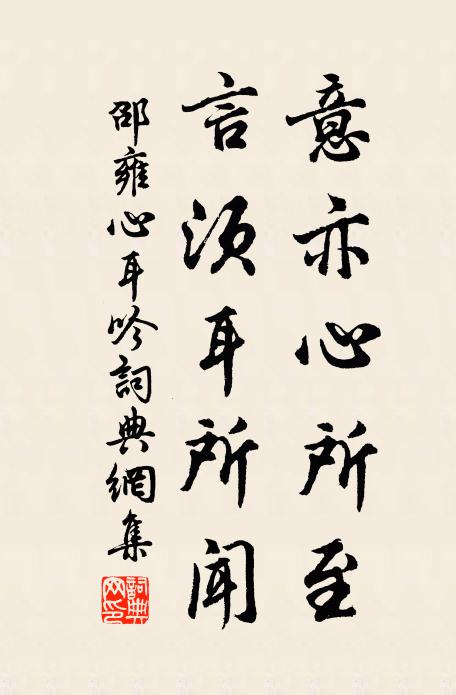 意亦心所至
言須耳所聞
邵雍心耳吟詞典網集
詞典网印